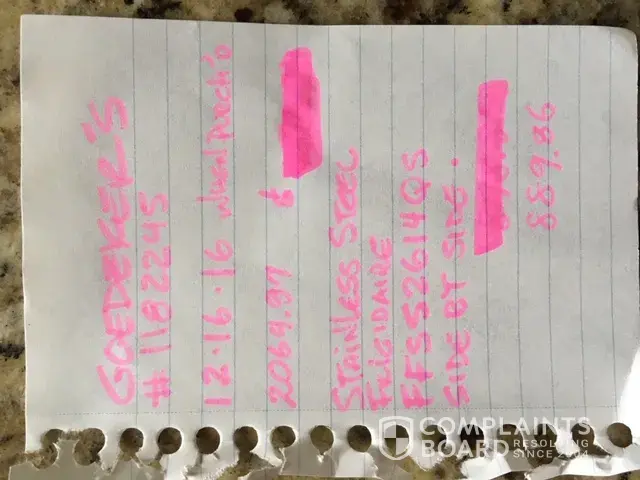 GOEDEKER'S
#1182245
12·16·16 when purch'd
2069.97 &
STAINLESS STEEL
FRIGIDAIRE
FFSS2614QS
SIDE BY SIDE.
889.06
COMPLAINTS
BOARD RESOLVING
SINCE 2004